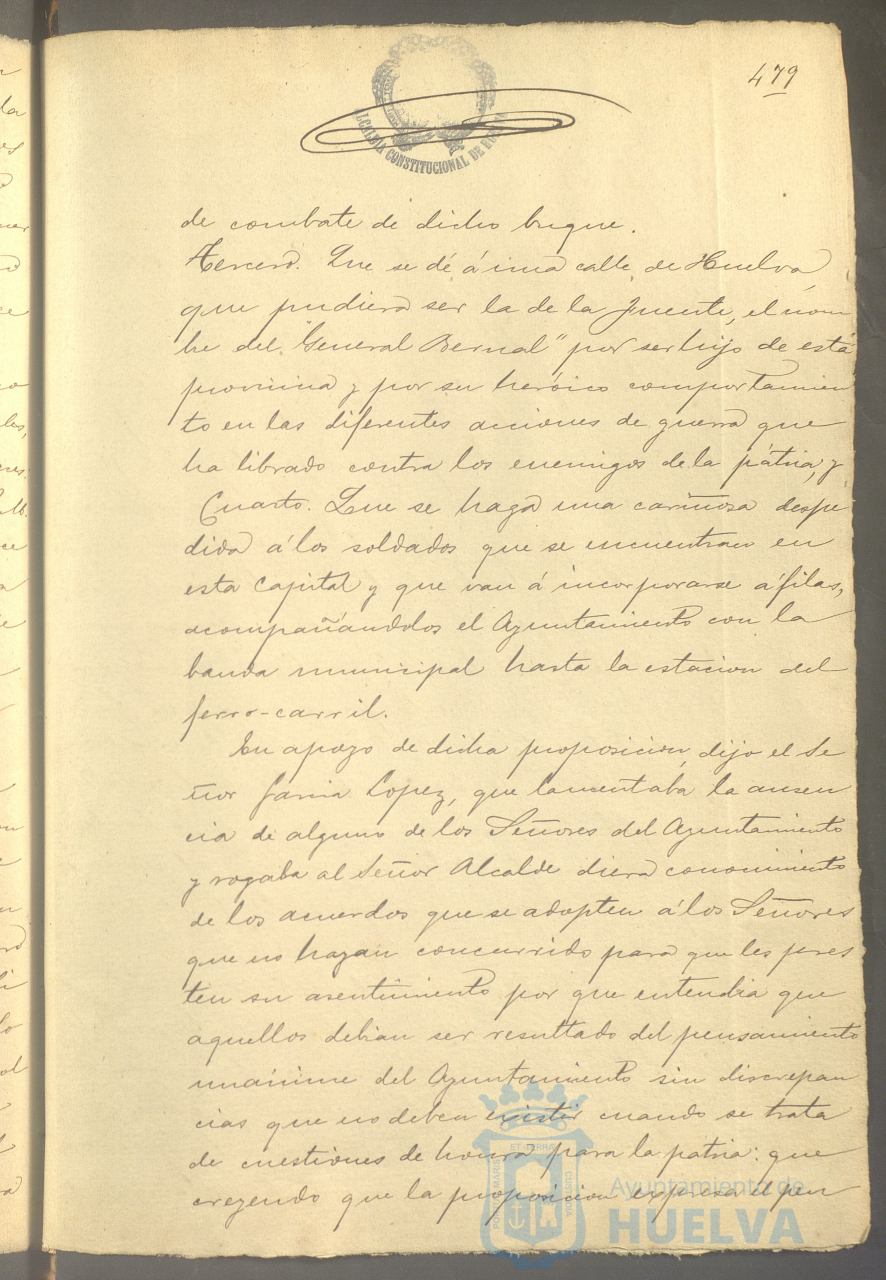 479
ALCALDIA CONSTITUCIONAL DE HUELVA
de combate de dicho buque.
Tercero. Que se dé á una calle de Huelva,
que pudiera ser la de la Fuente, el nom
bre del "General Bernal" por ser hijo de esta
provincia y por su heróico comportamien
to en las diferentes acciones de guerra que
ha librado contra los enemigos de la pátria, y
Cuarto. Que se haga una cariñosa despe
dida á los soldados que se encuentran en
esta Capital y que van á incorporarse á filas,
acompañándolos el Ayuntamiento con la
banda municipal hasta la estacion del
ferro-carril.
En apoyo de dicha proposicion, dijo el Se
ñor Garcia Lopez, que lamentaba la ausen
cia de alguno de los Señores del Ayuntamiento
y rogaba al Señor Alcalde diera conocimiento
de los acuerdos que se adopten á los Señores
que no hayan concurrido para que les pres
ten su asentimiento por que entendia que
aquellos debian ser resultado del pensamiento
unánime del Ayuntamiento sin discrepan
cias que no deben existir cuando se trata
de cuestiones de honra para la patria: que
creyendo que la proposicion expresa el pen
PORTUS MARIS ET TERRAE CUSTODIA
Ayuntamiento de
HUELVA